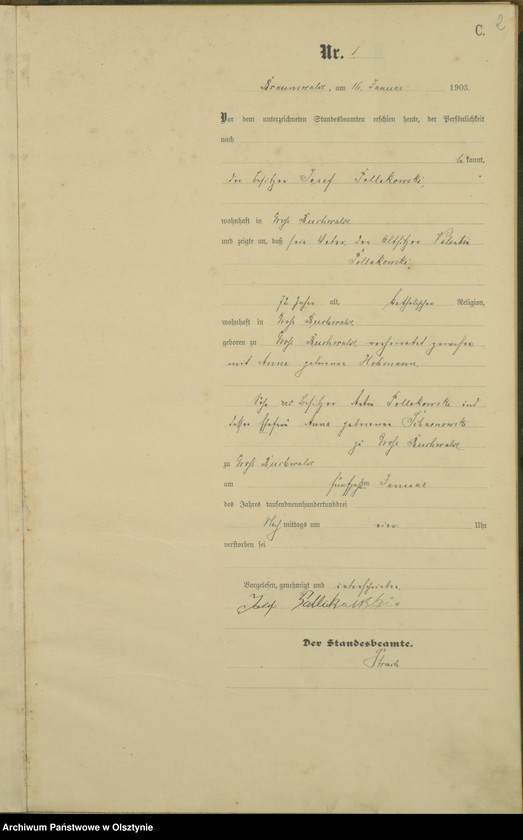 C. 2
Nr. 1
Braunswalde, am 16. Januar 1903.
Vor dem unterzeichneten Standesbeamten erschien heute, der Persönlichkeit
nach
be kannt,
der Besitzer Josef
wohnhaft in Groß Buchwalde
und zeigte an, daß sein Vater, der Altsitzer Valentin
72 Jahre alt, katholischer Religion,
wohnhaft in Groß Buchwalde
geboren zu Groß Buchwalde verheiratet gewesen
mit Anna geborenen Hohmann
Sohn des Besitzer und
dessen Ehefrau Anna geborenen
zu Groß Buchwalde
zu Groß Buchwalde
am fünfzehnten Januar
des Jahres tausendneunhundertunddrei
Nach mittags um vier Uhr
verstorben sei
Vorgelesen, genehmigt und unterschrieben
Josef
Der Standesbeamte.
Archiwum Państwowe w Olsztynie